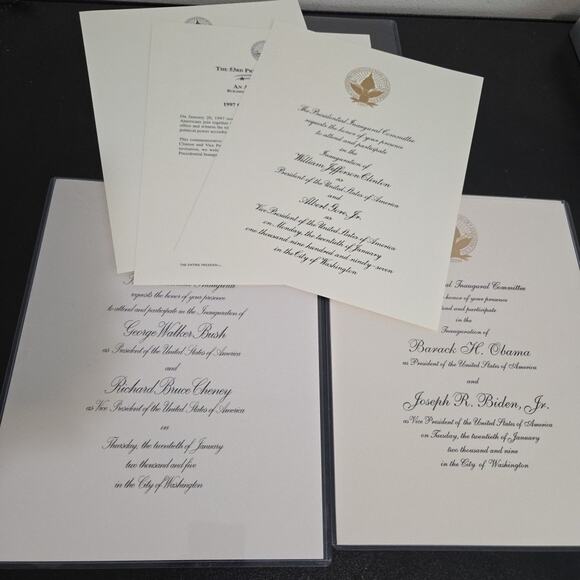 The 53rd Pr
An A
1997
On January 20, 1997
Americans join together
office and witness the
political power accordin
This commemorative
Clinton and Vice Pr
invitation, we
Presidential Inaugu
THE ENTIRE PRESIDEN
The Presidential Inaugural Committee
requests the honor of your presence
to attend and participate
in the
Inauguration of
William Jefferson Clinton
as
President of the United States of America
and
Albert Gore, Jr.
as
Vice President of the United States of America
on Monday, the twentieth of January
one thousand nine hundred and ninety-seven
in the City of Washington
requests the honor of your presence
to attend and participate in the Inauguration of
George Walker Bush
as President of the United States of America
and
Richard Bruce Cheney
as Vice President of the United States of America
on
Thursday, the twentieth of January
two thousand and five
in the City of Washington
al Inaugural Committee
honor of your presence
and participate
in the
Inauguration of
Barack H. Obama
as President of the United States of America
and
Joseph R. Biden, Jr.
as Vice President of the United States of America
on Tuesday, the twentieth of January
two thousand and nine
in the City of Washington